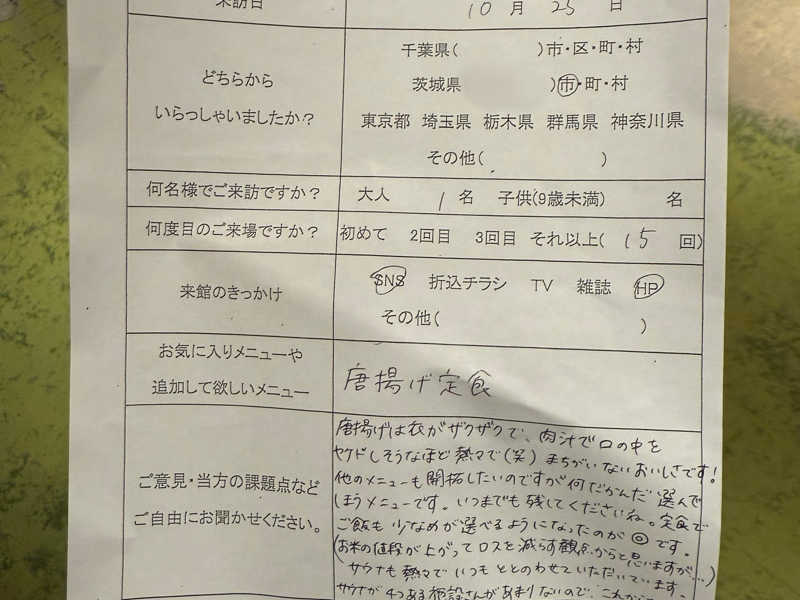 来訪日 10月 25 日
どちらから
いらっしゃいましたか？
千葉県( )市・区・町・村
茨城県 )市・町・村
東京都 埼玉県 栃木県 群馬県 神奈川県
その他( )
何名様でご来訪ですか？ 大人 1 名 子供(9歳未満) 名
何度目のご来場ですか？ 初めて 2回目 3回目 それ以上( 15 回)
来館のきっかけ
SNS 折込チラシ TV 雑誌 HP
その他( )
お気に入りメニューや
追加して欲しいメニュー
唐揚げ定食
ご意見・当方の課題点など
ご自由にお聞かせください。
唐揚げは衣がザクザクで、肉汁で口の中を
ヤケドしそうなほど熱々で(笑) まちがいないおいしさです!
他のメニューも開拓したいのですが何だかんだ選んで
しまうメニューです。いつまでも残してくださいね。定食で
ご飯も少なめが選べるようになったのが◎です。
(お米の値段が上がってロスを減らす観点からと思いますが…)
サウナも熱々でいつもととのわせていただいています。
サウナが4つある施設さんがあまりないので、これから